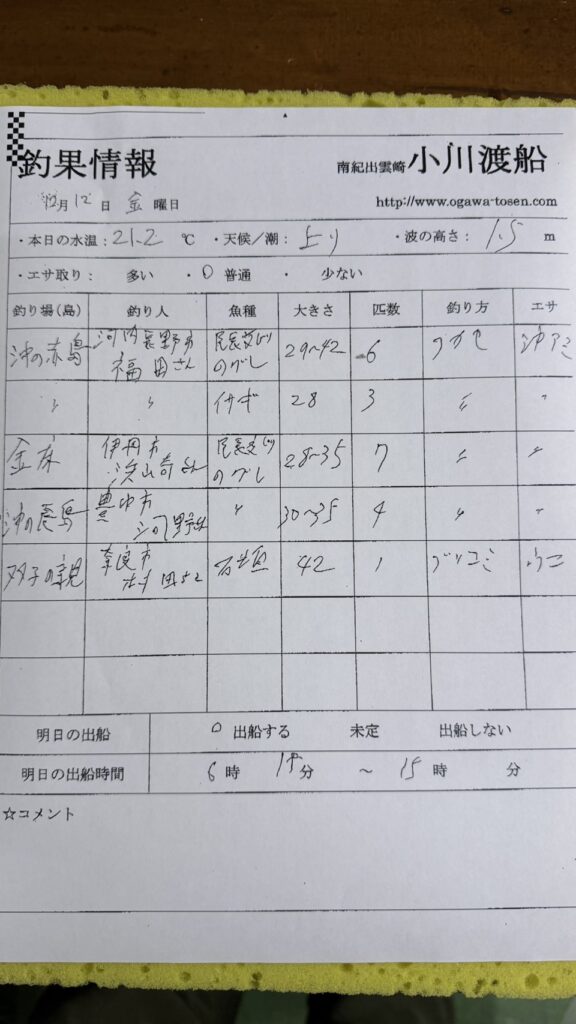 釣果情報
南紀出雲崎 小川渡船
12月 12 日 金 曜日
http://www.ogawa-tosen.com
・本日の水温：21.2 ℃ ・天候／潮：上り ・波の高さ：1.5 m
・エサ取り： 多い ・○ 普通 ・ 少ない
釣り場（島） 釣り人 魚種 大きさ 匹数 釣り方 エサ
沖の赤島 河内長野市 福田さん 尾長交り のグレ 29〜42 6 フカセ 沖アミ
〃 〃 イサギ 28 3 〃 〃
金床 伊丹市 尾長交り のグレ 28〜35 7 〃 〃
沖の長島 豊中市 河野さん 〃 30〜35 4 〃 〃
双子の親 奈良市 村田さん 石垣 42 1 ブッコミ ウニ
明日の出船 ○ 出船する 未定 出船しない
明日の出船時間 6 時 分 〜 15 時 分
☆コメント